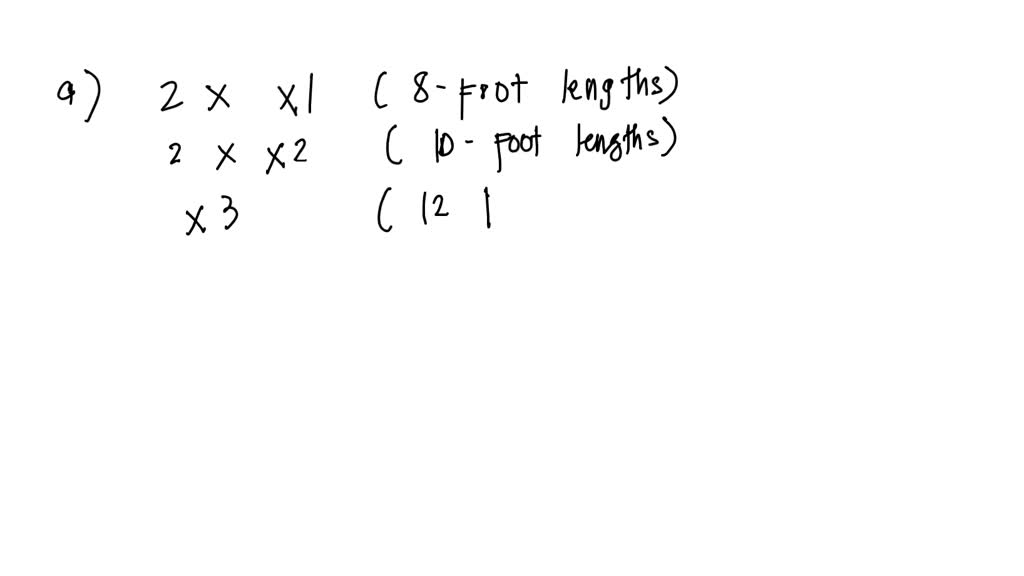 a) 2 x x1 ( 8-foot lengths)
2 x x2 ( 10-foot lengths)
x3 ( 12 |